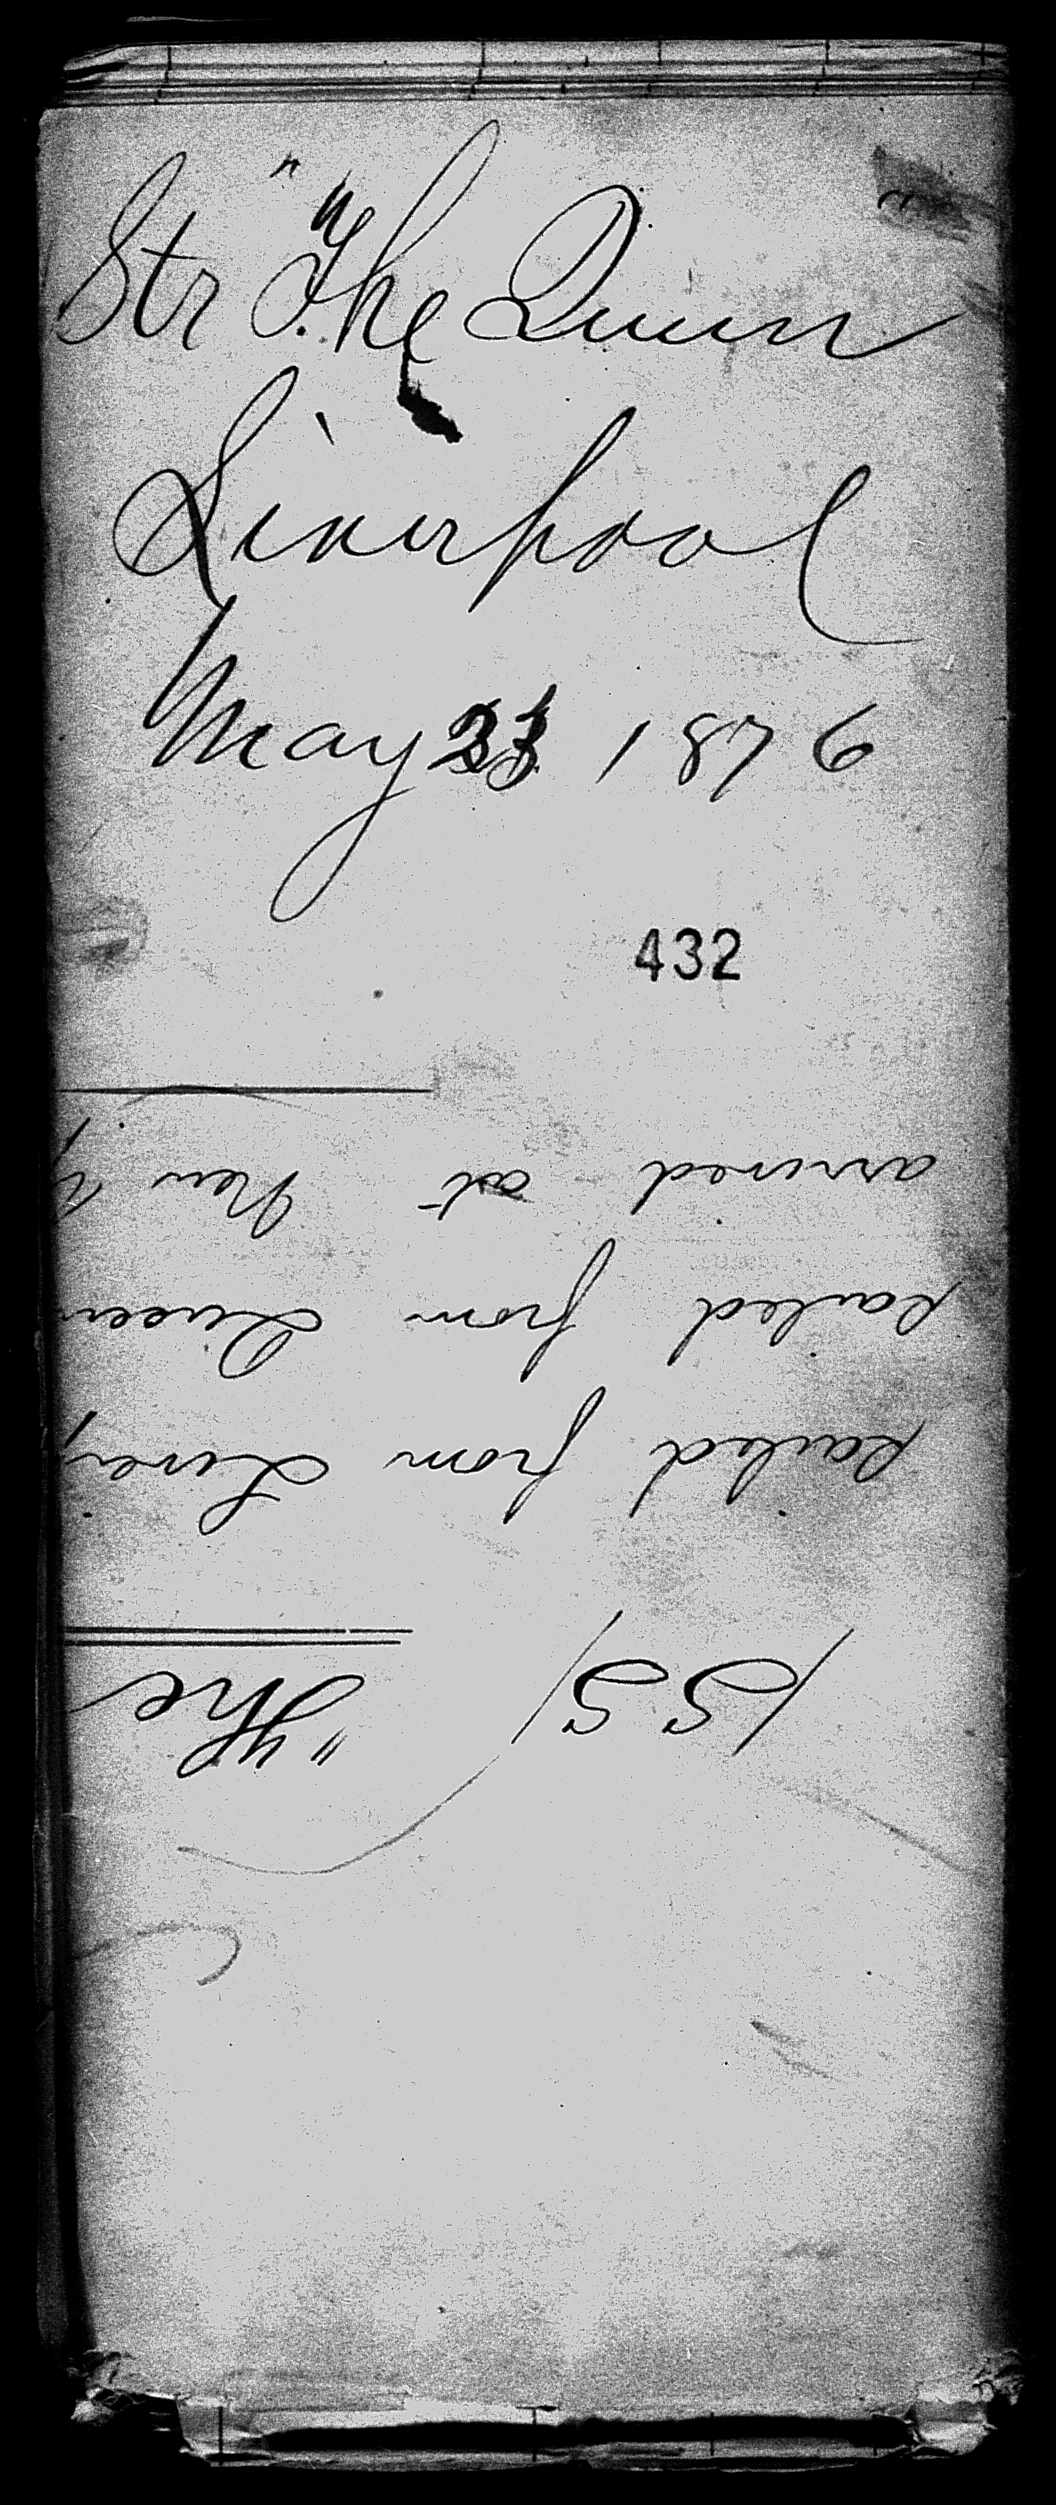 Str "The Queen"
Liverpool
May 1876
432
SS "The
sailed from Liverp
sailed from Queen
arrived at New Y